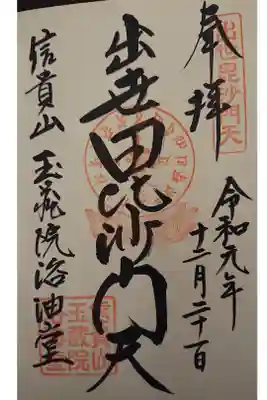 奉拝
出世毘沙門天
令和元年
十二月二十日
出世毘沙門天
信貴山 玉蔵院浴油堂
信貴山
玉蔵院